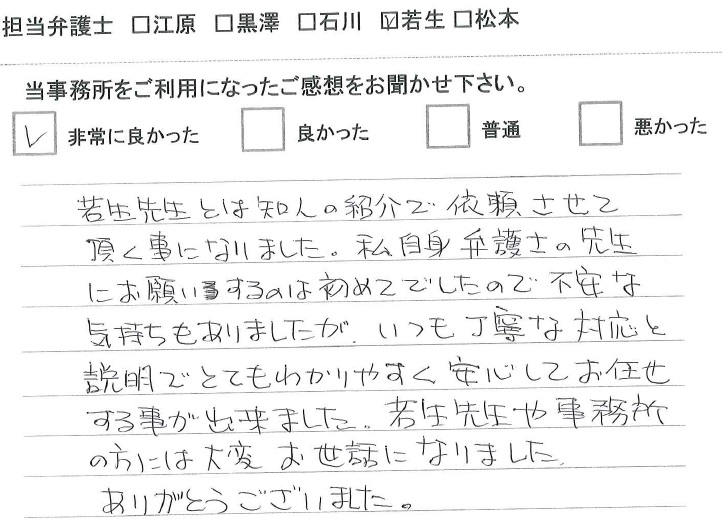 担当弁護士 □江原 □黒澤 □石川 ☑若生 □松本
当事務所をご利用になったご感想をお聞かせ下さい。
☑ 非常に良かった □ 良かった □ 普通 □ 悪かった
若生先生とは知人の紹介で依頼させて
頂く事になりました。私自身弁護士の先生
にお願いするのは初めてでしたので不安な
気持ちもありましたが、いつも丁寧な対応と
説明でとてもわかりやすく安心してお任せ
する事が出来ました。若生先生や事務所
の方には大変お世話になりました。
ありがとうございました。